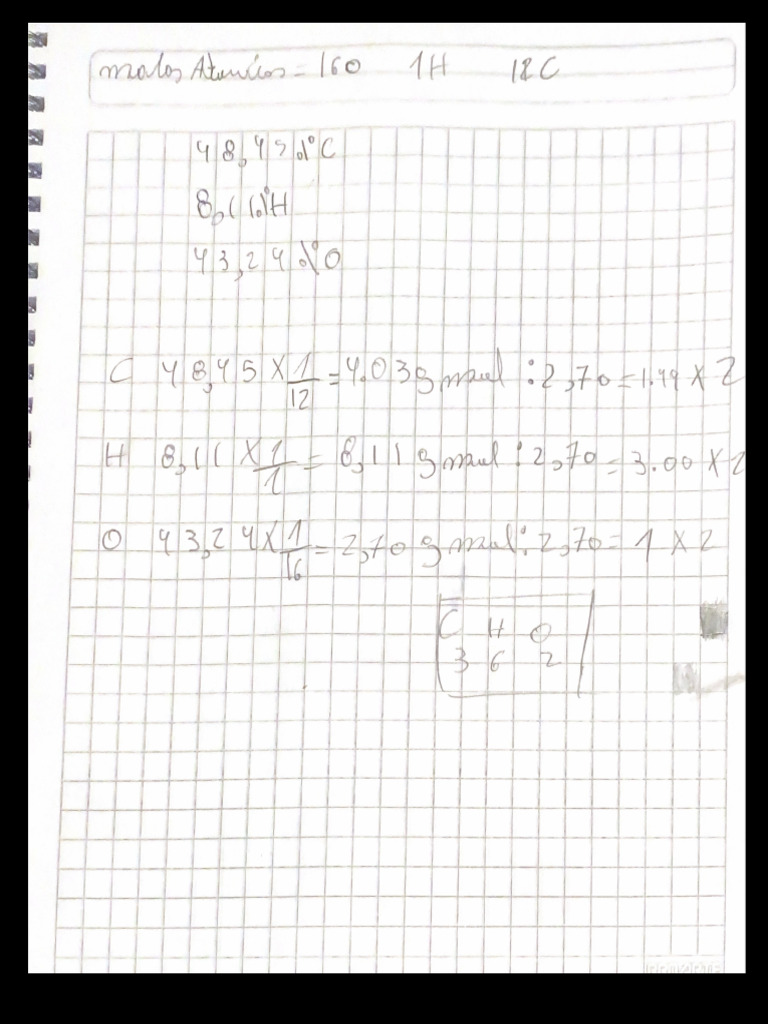 masas Atomicas = 16O 1H 12C
48,45 % C
8,11 % H
43,24 % O
C 48,45 X 1/12 = 4.03 g mol : 2,70 = 1.49 X 2
H 8,11 X 1/1 = 8,11 g mol : 2,70 = 3.00 X 2
O 43,24 X 1/16 = 2,70 g mol : 2,70 = 1 X 2
C H O
3 6 2